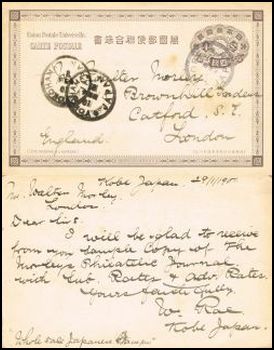 Union Postale Universelle.
CARTE POSTALE
書葉合聯便郵國萬
Walter Morley
Brownhill Gardens
Catford. S. E.
London
England.
Kobe Japan.
Mr. Walter Morley.
London.
Dear Sir.
I will be glad to receive
from you sample copy of The
Morleys Philatelic Journal
with Sub. Rates & Adv. Rates.
Yours faithfully.
W. Rae
Kobe Japan.
"Wholesale Japanese Stamps"